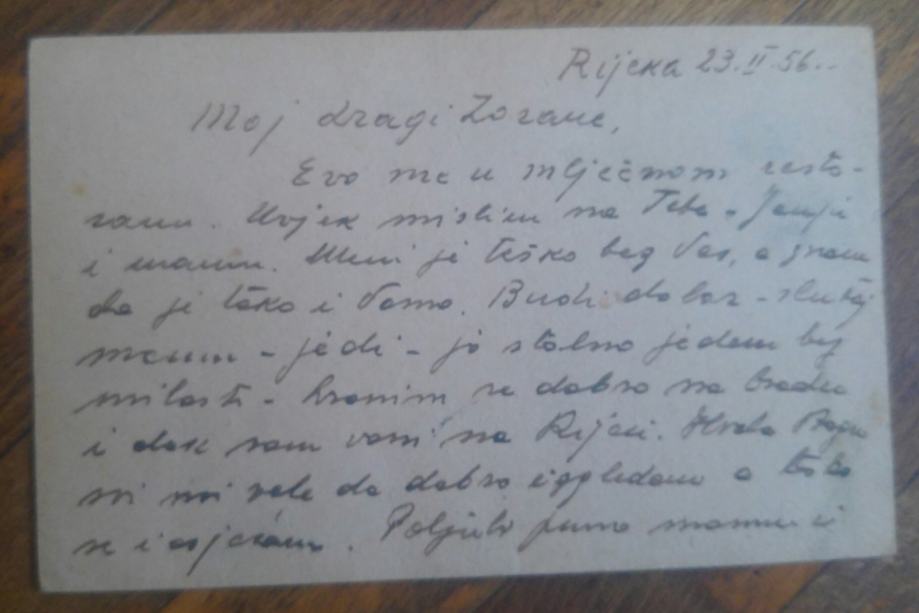 Rijeka 23.II.56.
Moj dragi Zorane,
Evo me u mlječnom resto-
ranu. Uvjek mislim na Tebe -
i mamu. Meni je teško bez Vas, a znam
da je tako i Vama. Budi dobar - slušaj
mamu - jedi - ja stalno jedem bez
milosti - hranim se dobro na brodu
i dok sam vani na Rijeci. Hvala Bogu
svi mi vele da dobro izgledam a tako
se i osjećam. Poljubi puno mamu i